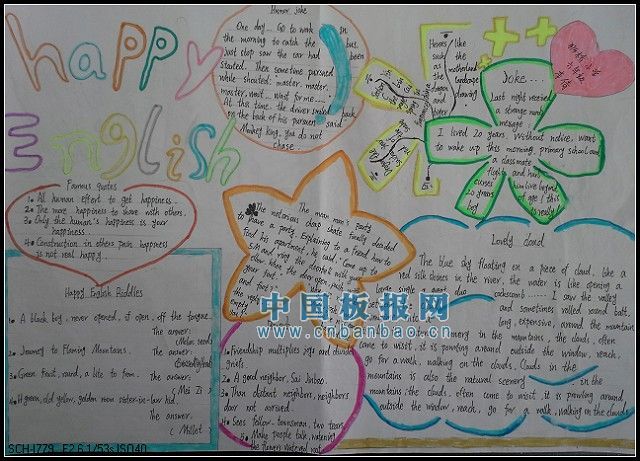 happy
English
Humor joke
One day... Go to work in
the morning to catch the bus,
just stop saw the car had been
started. Then sometime pursued
while shouted: master. master.
master, wait... wait for me.....
At this time, the driver smiled
on the back of his pursuer said
Monkey king, you do not
chase.
Horses like
such the
as motherland
the landscape
and drawing
Joke....
Last night received
a strange mobile
message
I lived 20 years. Without notice, want
to wake up this morning, primary school and
a classmate
fights and han
him live beyond
20 years of age (this
boy is really)
Famous quotes
1. All human effort to get happiness.
2. The more happiness to share with others.
3. Only the human's happiness is your
happiness.
4. Construction in others pain happiness
is not real happy.
The mean man's Party
The notorious cheap skate finally decided
to have a party. Explaining to a friend how to
find his apartment, he said: "Come up to
5M and ring the doorbell with your
elbow. When the door open, push with
your foot."
and foot
the
empty
Happy English Riddles
1. A black boy, never opened, if open, off the tongue.
The answer:
(Melon seeds)
2. Journey to Flaming Mountains.
The answer:
3. Green fruit, round, a bite to fom. The answer:
( Mei Zi )
4. H green, old yellow, golden room sister-in-law kid.
The answer.
( Millet )
1. Friendship multiplies joys and divides
griefs.
2. A good neighbor, Sai Jinbao.
3. Than distant neighbors, neighbors
door not worried.
4. Seas follow townsman, two tears
5. Make people talk, watering
the flowers watered root
Lovely cloud
The blue sky floating on a piece of cloud, like a
red silk shines in the river, the water is like opening a
large single a giant dad cockscomb ...... I saw the valley
and sometimes rolled round bolt,
long, expensive, around the mountain
scenery in the mountains, the clouds, often
come to visit, it is prowling around outside the window, reach,
go for a walk, walking on the clouds. Clouds in the
mountains is also the natural scenery ...... in the
mountains the clouds, often come to visit, it is prowling around,
outside the window, reach, go for a walk, walking on the clouds
中国板报网
www.cnbanbao.cn
SCH-I779 F2.6 1/53s ISO40